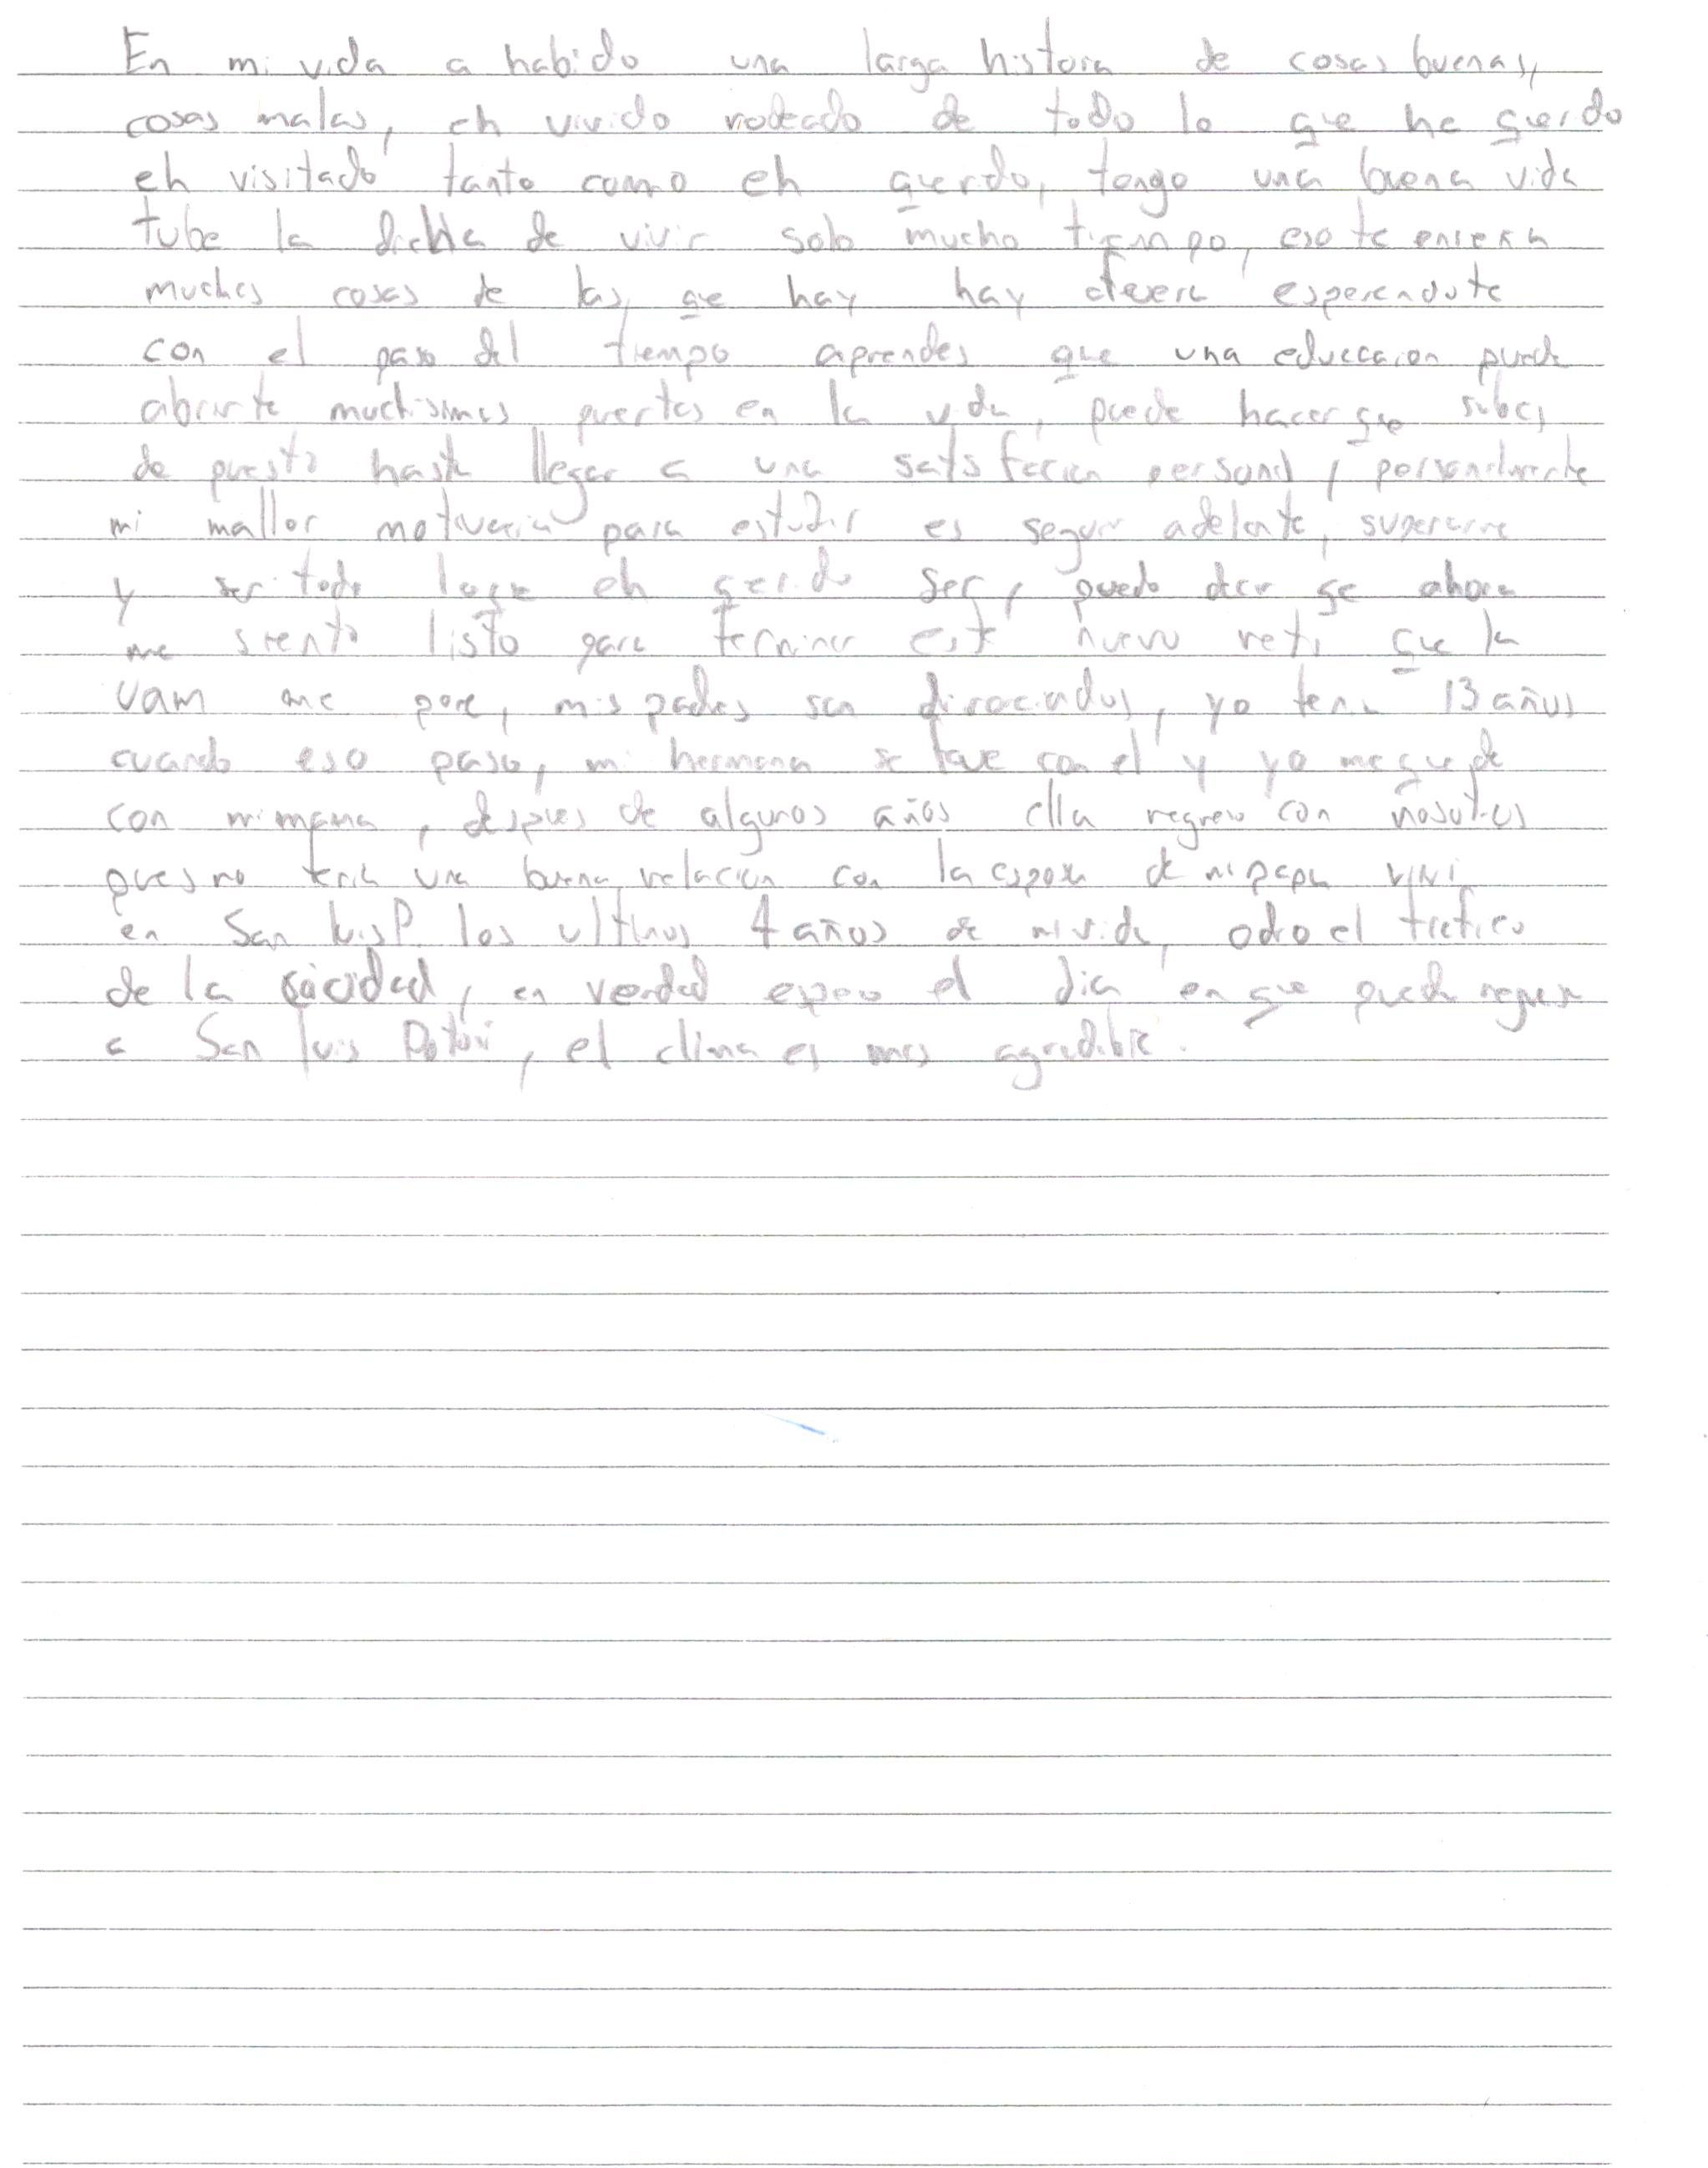 En mi vida a habido una larga historia de cosas buenas,
cosas malas, eh vivido rodeado de todo lo que he querido
eh visitado tanto como eh querido, tengo una buena vida
tube la dicha de vivir solo mucho tiempo, eso te enseña
muchas cosas de las que hay hay afuera esperandote
con el paso del tiempo aprendes que una educacion puede
abrirte muchisimas puertas en la vida, puede hacer que subas
de puesto hasta llegar a una satisfacion personal, personalmente
mi mallor motivacion para estudiar es seguir adelante, superarme
y ser todo loque eh querido ser, puedo decir que ahora
me siento listo para terminar este nuevo reto que la
uam me pone, mis padres son divorciados, yo tenia 13 años
cuando eso paso, mi hermana se fue con el y yo me quede
con mi mama, despues de algunos años ella regreso con nosotros
pues no tenia una buena relacion con la esposa de mi papa vivi
en San Luis P. los ultimos 4 años de mi vida, odio el trafico
de la ciudad, en verdad espero el dia en que pueda regresar
a San Luis Potosi, el clima es mas agradable.